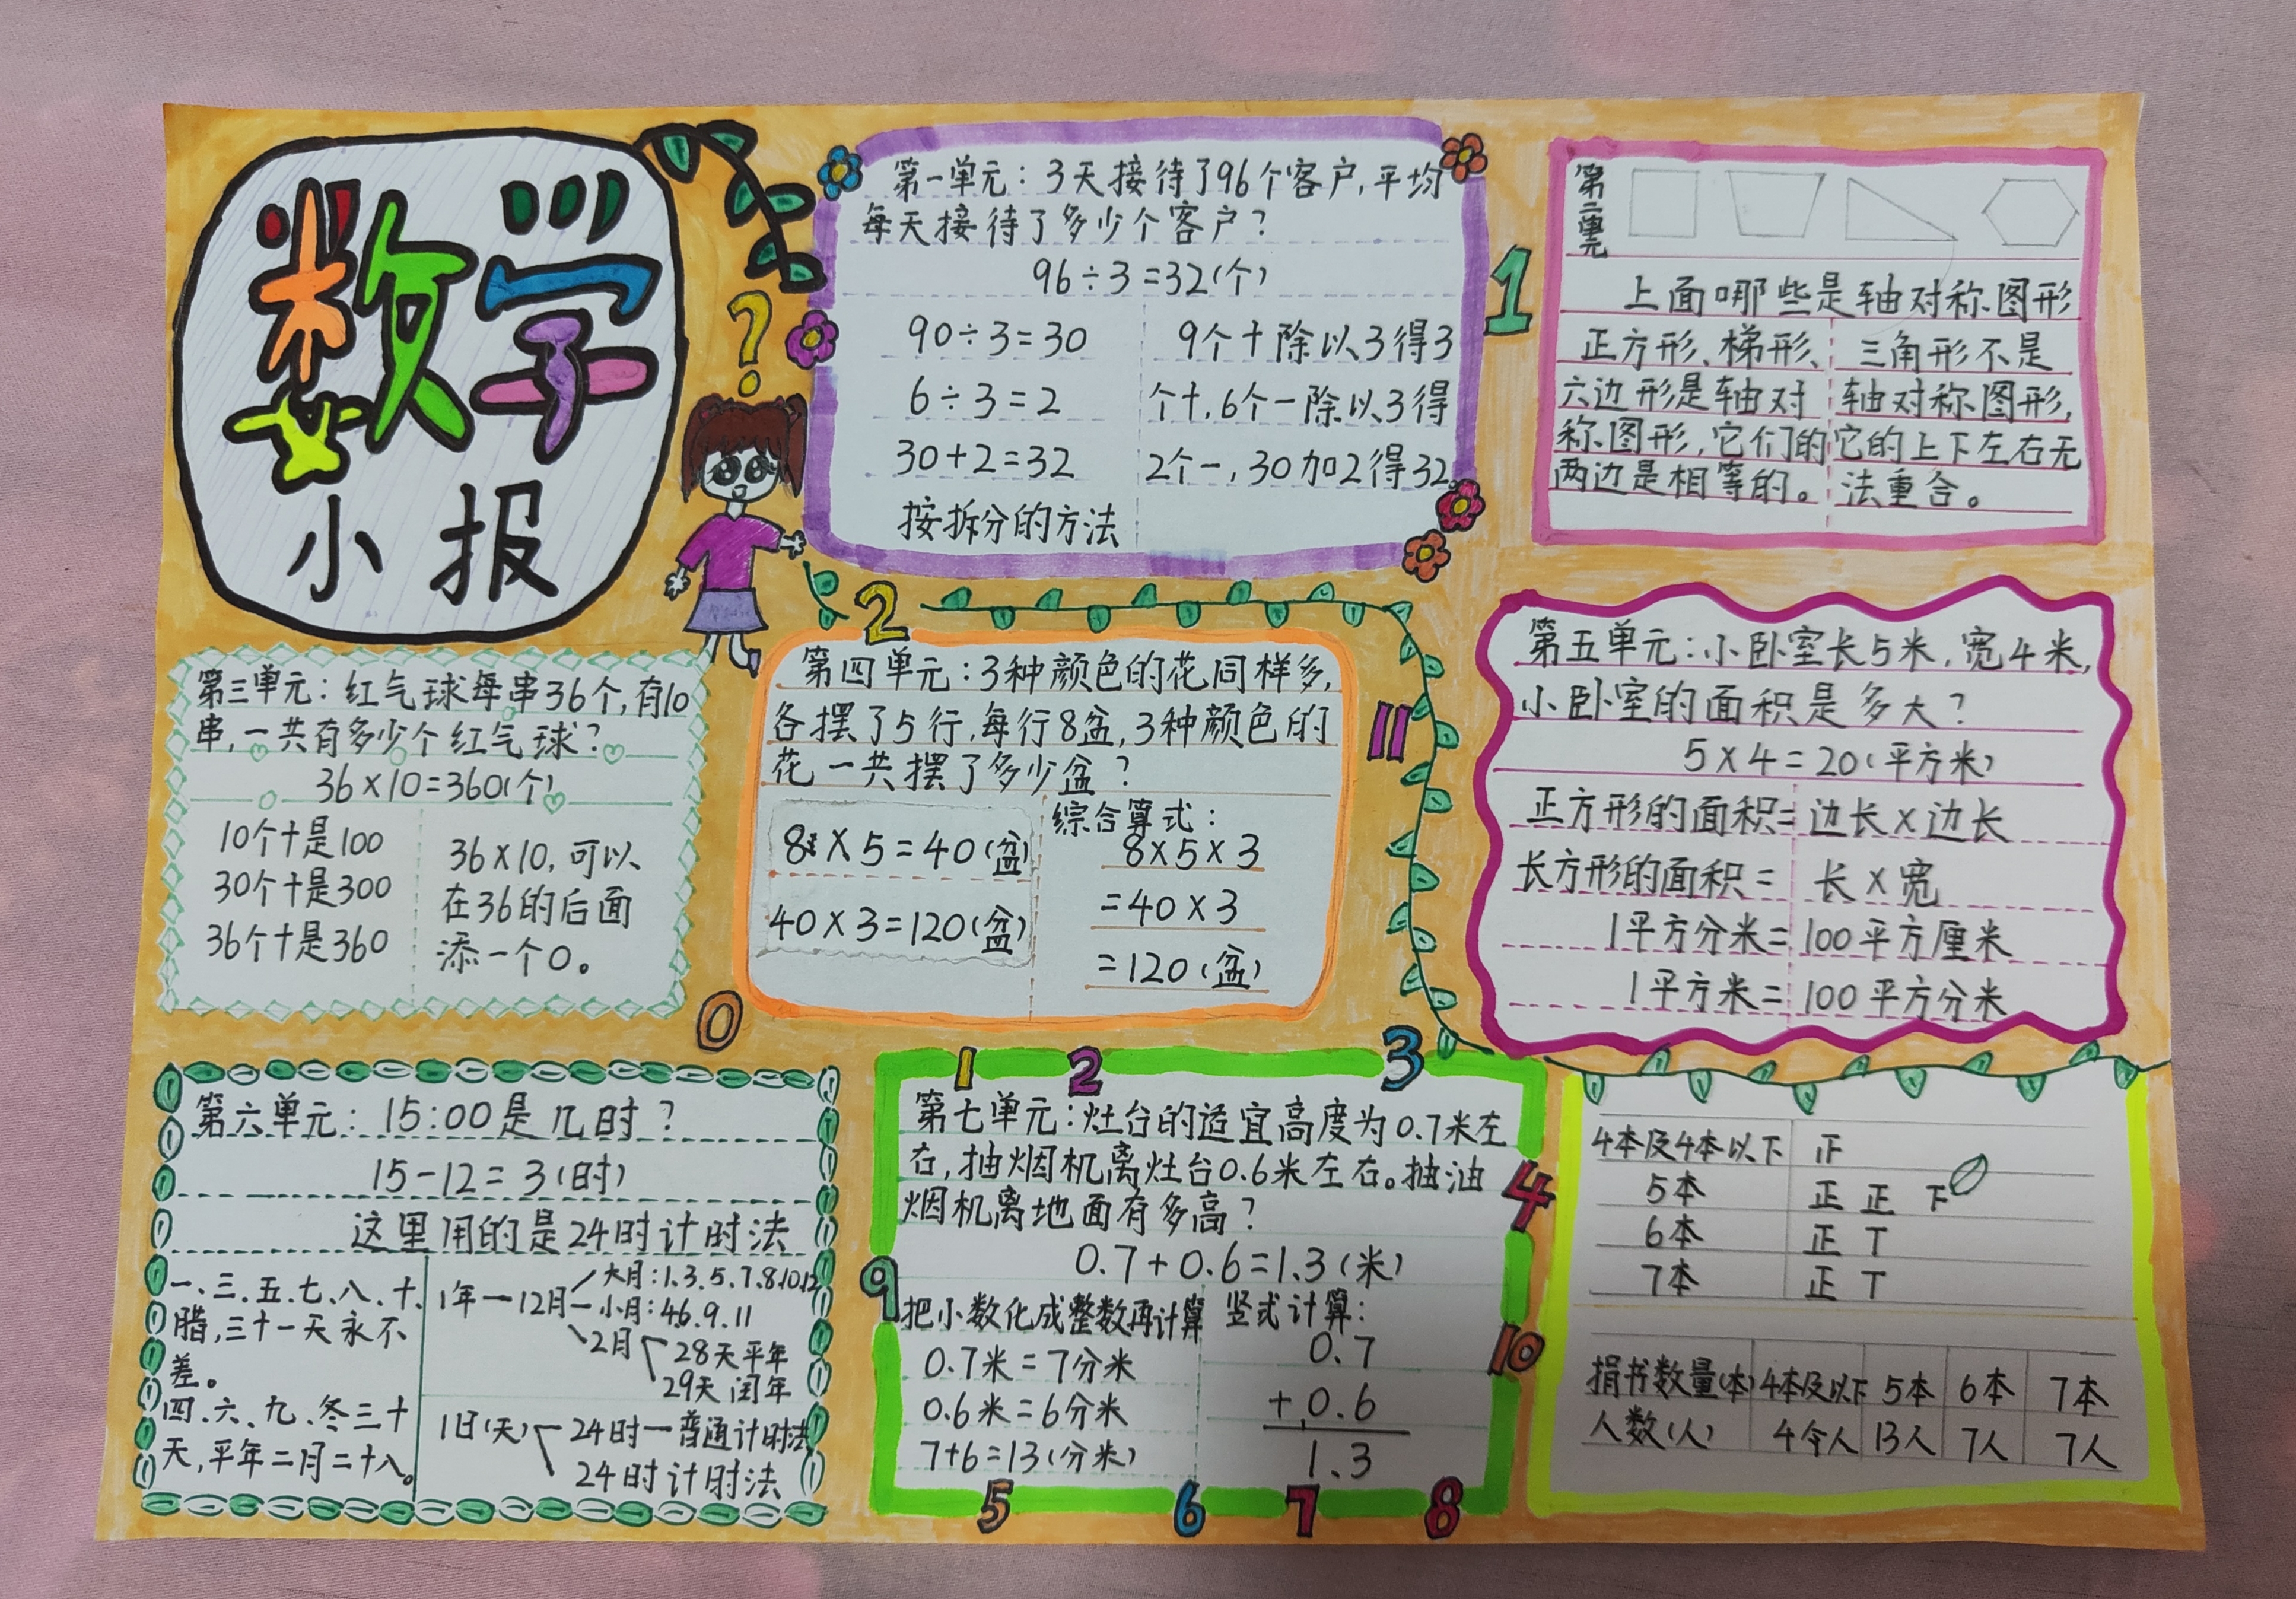 数学
小报
?
第一单元：3天接待了96个客户,平均
每天接待了多少个客户？
96÷3=32(个)
90÷3=30
6÷3=2
30+2=32
按拆分的方法
9个十除以3得3
个十,6个一除以3得
2个一,30加2得32。
1
第二单元
上面哪些是轴对称图形
正方形、梯形、
六边形是轴对
称图形,它们的
两边是相等的。
三角形不是
轴对称图形,
它的上下左右无
法重合。
第三单元：红气球每串36个,有10
串,一共有多少个红气球？
36×10=360(个)
10个十是100
30个十是300
36个十是360
36×10,可以
在36的后面
添一个0。
0
2
第四单元：3种颜色的花同样多,
各摆了5行,每行8盆,3种颜色的
花一共摆了多少盆？
8×5=40(盆)
40×3=120(盆)
综合算式：
8×5×3
=40×3
=120(盆)
11
第五单元：小卧室长5米,宽4米,
小卧室的面积是多大？
5×4=20(平方米)
正方形的面积=边长×边长
长方形的面积=长×宽
1平方分米=100平方厘米
1平方米=100平方分米
第六单元：15:00是几时？
15-12=3(时)
这里用的是24时计时法
一、三、五、七、八、十、
腊,三十一天永不
差。
四、六、九、冬三十
天,平年二月二十八。
1年—12月
大月:1.3.5.7.8.10.12
小月:4.6.9.11
2月
28天平年
29天闰年
1日(天)
24时—普通计时法
24时计时法
1 2 3
第七单元：灶台的适宜高度为0.7米左
右,抽烟机离灶台0.6米左右。抽油
烟机离地面有多高？
0.7+0.6=1.3(米)
把小数化成整数再计算
0.7米=7分米
0.6米=6分米
7+6=13(分米)
竖式计算：
0.7
+0.6
1.3
4
9
10
5 6 7 8
4本及4本以下 正
5本 正 正 下
6本 正 丅
7本 正 丅
捐书数量(本) 4本及以下 5本 6本 7本
人数(人) 4人 13人 7人 7人